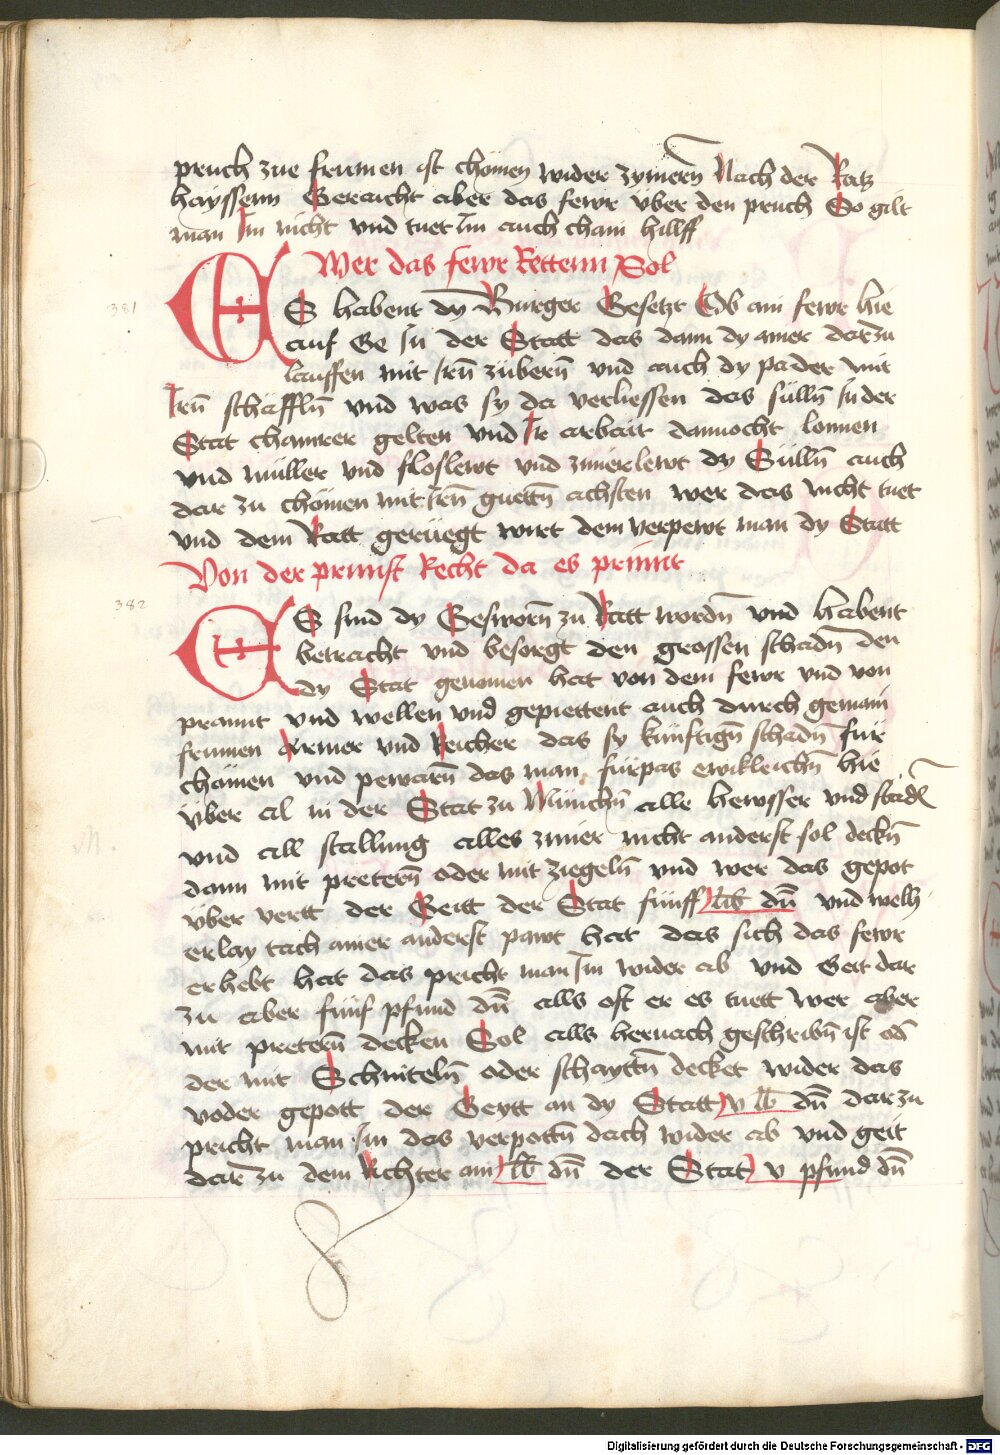 pruch zue frumen ist chömen wider zymern Nach der Ratz
hayssenn Geraicht aber das fewr über den pruch So gilt
man Im nicht vnd tuet Im auch chain hillff
Wer das fewr Rettenn Sol
381
ES habent dy Burger Gesetzt Ob ain fewr hie
auf Ge In der Statt das dann dy amer dar zu
lauffen mit Irñ züberñ vnd auch dy pader mit
Irñ schäfflñ vnd was sy da verliessen das süllñ In der
Stat chamrer gelten vnd Ir arbait dannocht lonnen
vnd müller vnd floslewt vnd zimerlewt dy Süllñ auch
dar zu chömen mit Irñ guettñ achsten wer das nicht tuet
vnd dem Ratt gerüegt wirt dem verpewt man dy Statt
Von der prunst Recht da es prinnt
382
ES sind dy Gesworñ zu Ratt wordñ vnd habent
betracht vnd besorgt den grossen schadñ den
dy Stat genomen hat von dem fewr vnd von
prannt vnd wellen vnd gepiettent auch durch gemain
frumen Armer vnd Reicher das sy künftigñ schadñ für
chömen vnd pewarñ das man fürpas ewikleichñ hie
über al in der Stat zu Münichñ alle hewsser vnd städl
vnd all stallung alles zimer nicht anderst sol deckñ
dann mit preterñ oder mit ziegelñ vnd wer das gepot
über vertt der Geitt der Stat fünff lib dñ vnd welh
erlay tach ainer anderst pawt hat das sich das fewr
erhebt hat das pricht man Im wider ab vnd Geit dar
zu aber fünf pfund dñ alls oft er es tuett Wer aber
mit preterñ decken Sol alls hernach geschribñ ist od
der mit Schintelñ oder schayttñ decket wider das
voder gepott der Geytt an dy Statt v lb dñ dar zu
pricht man Im das verpottñ dach wider ab vnd geit
dar zu dem Richter ain lb dñ der Stat v pfund dñ
Digitalisierung gefördert durch die Deutsche Forschungsgemeinschaft - DFG